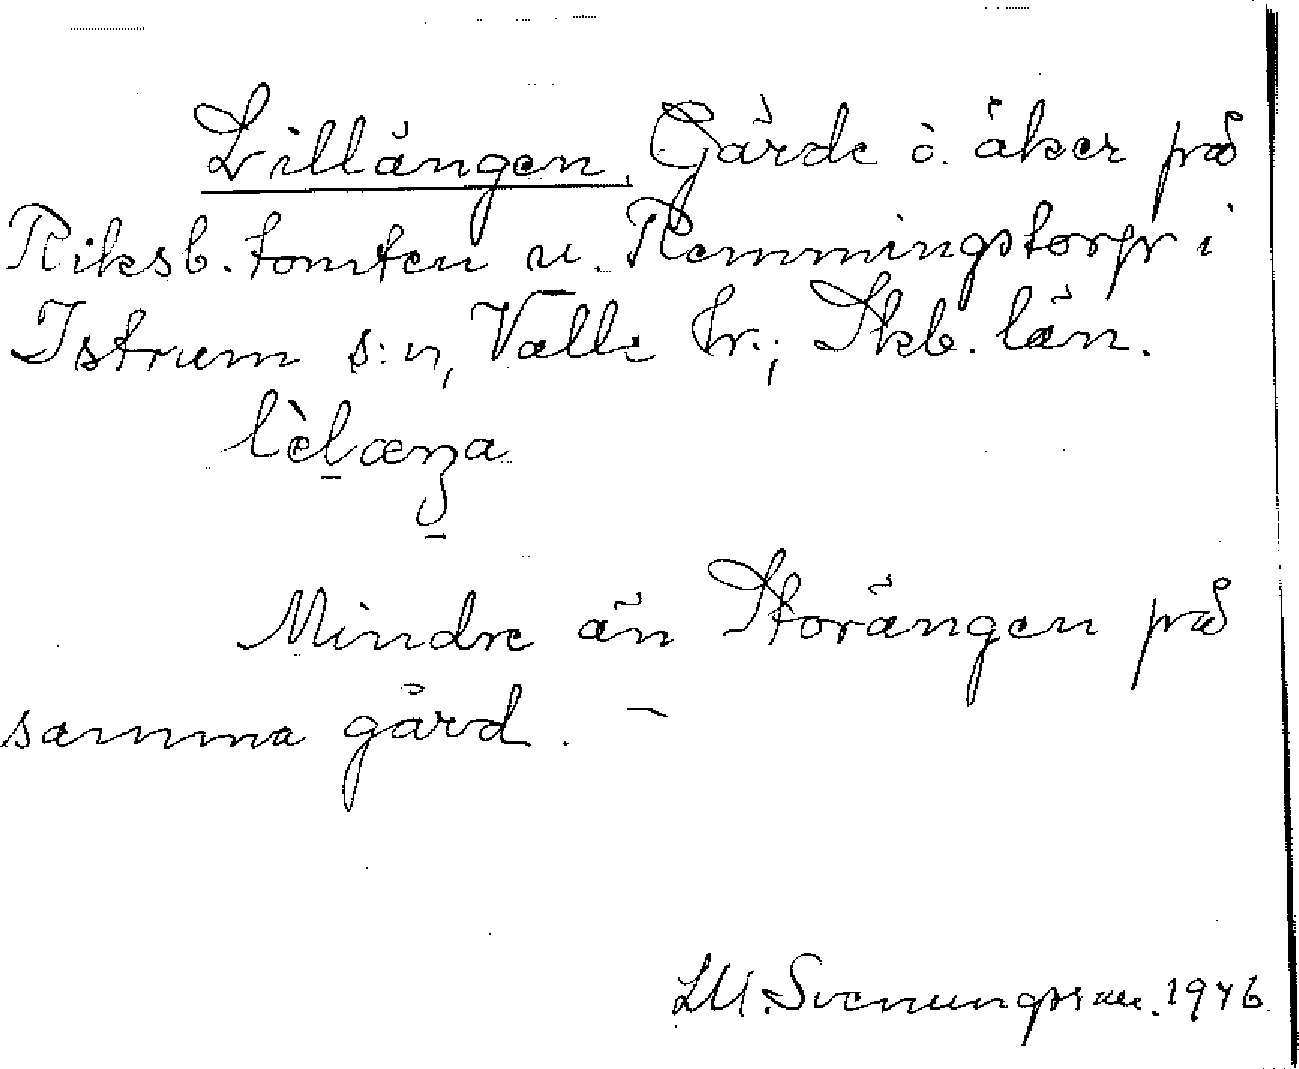 Lillängen. Gärde o. åker på
Riksb. tomten u. Remmingstorp i
Istrum s:n, Valle hr.; Skb. län.
Mindre än Storängen på
samma gård. –
LM. Svenungsson. 1946